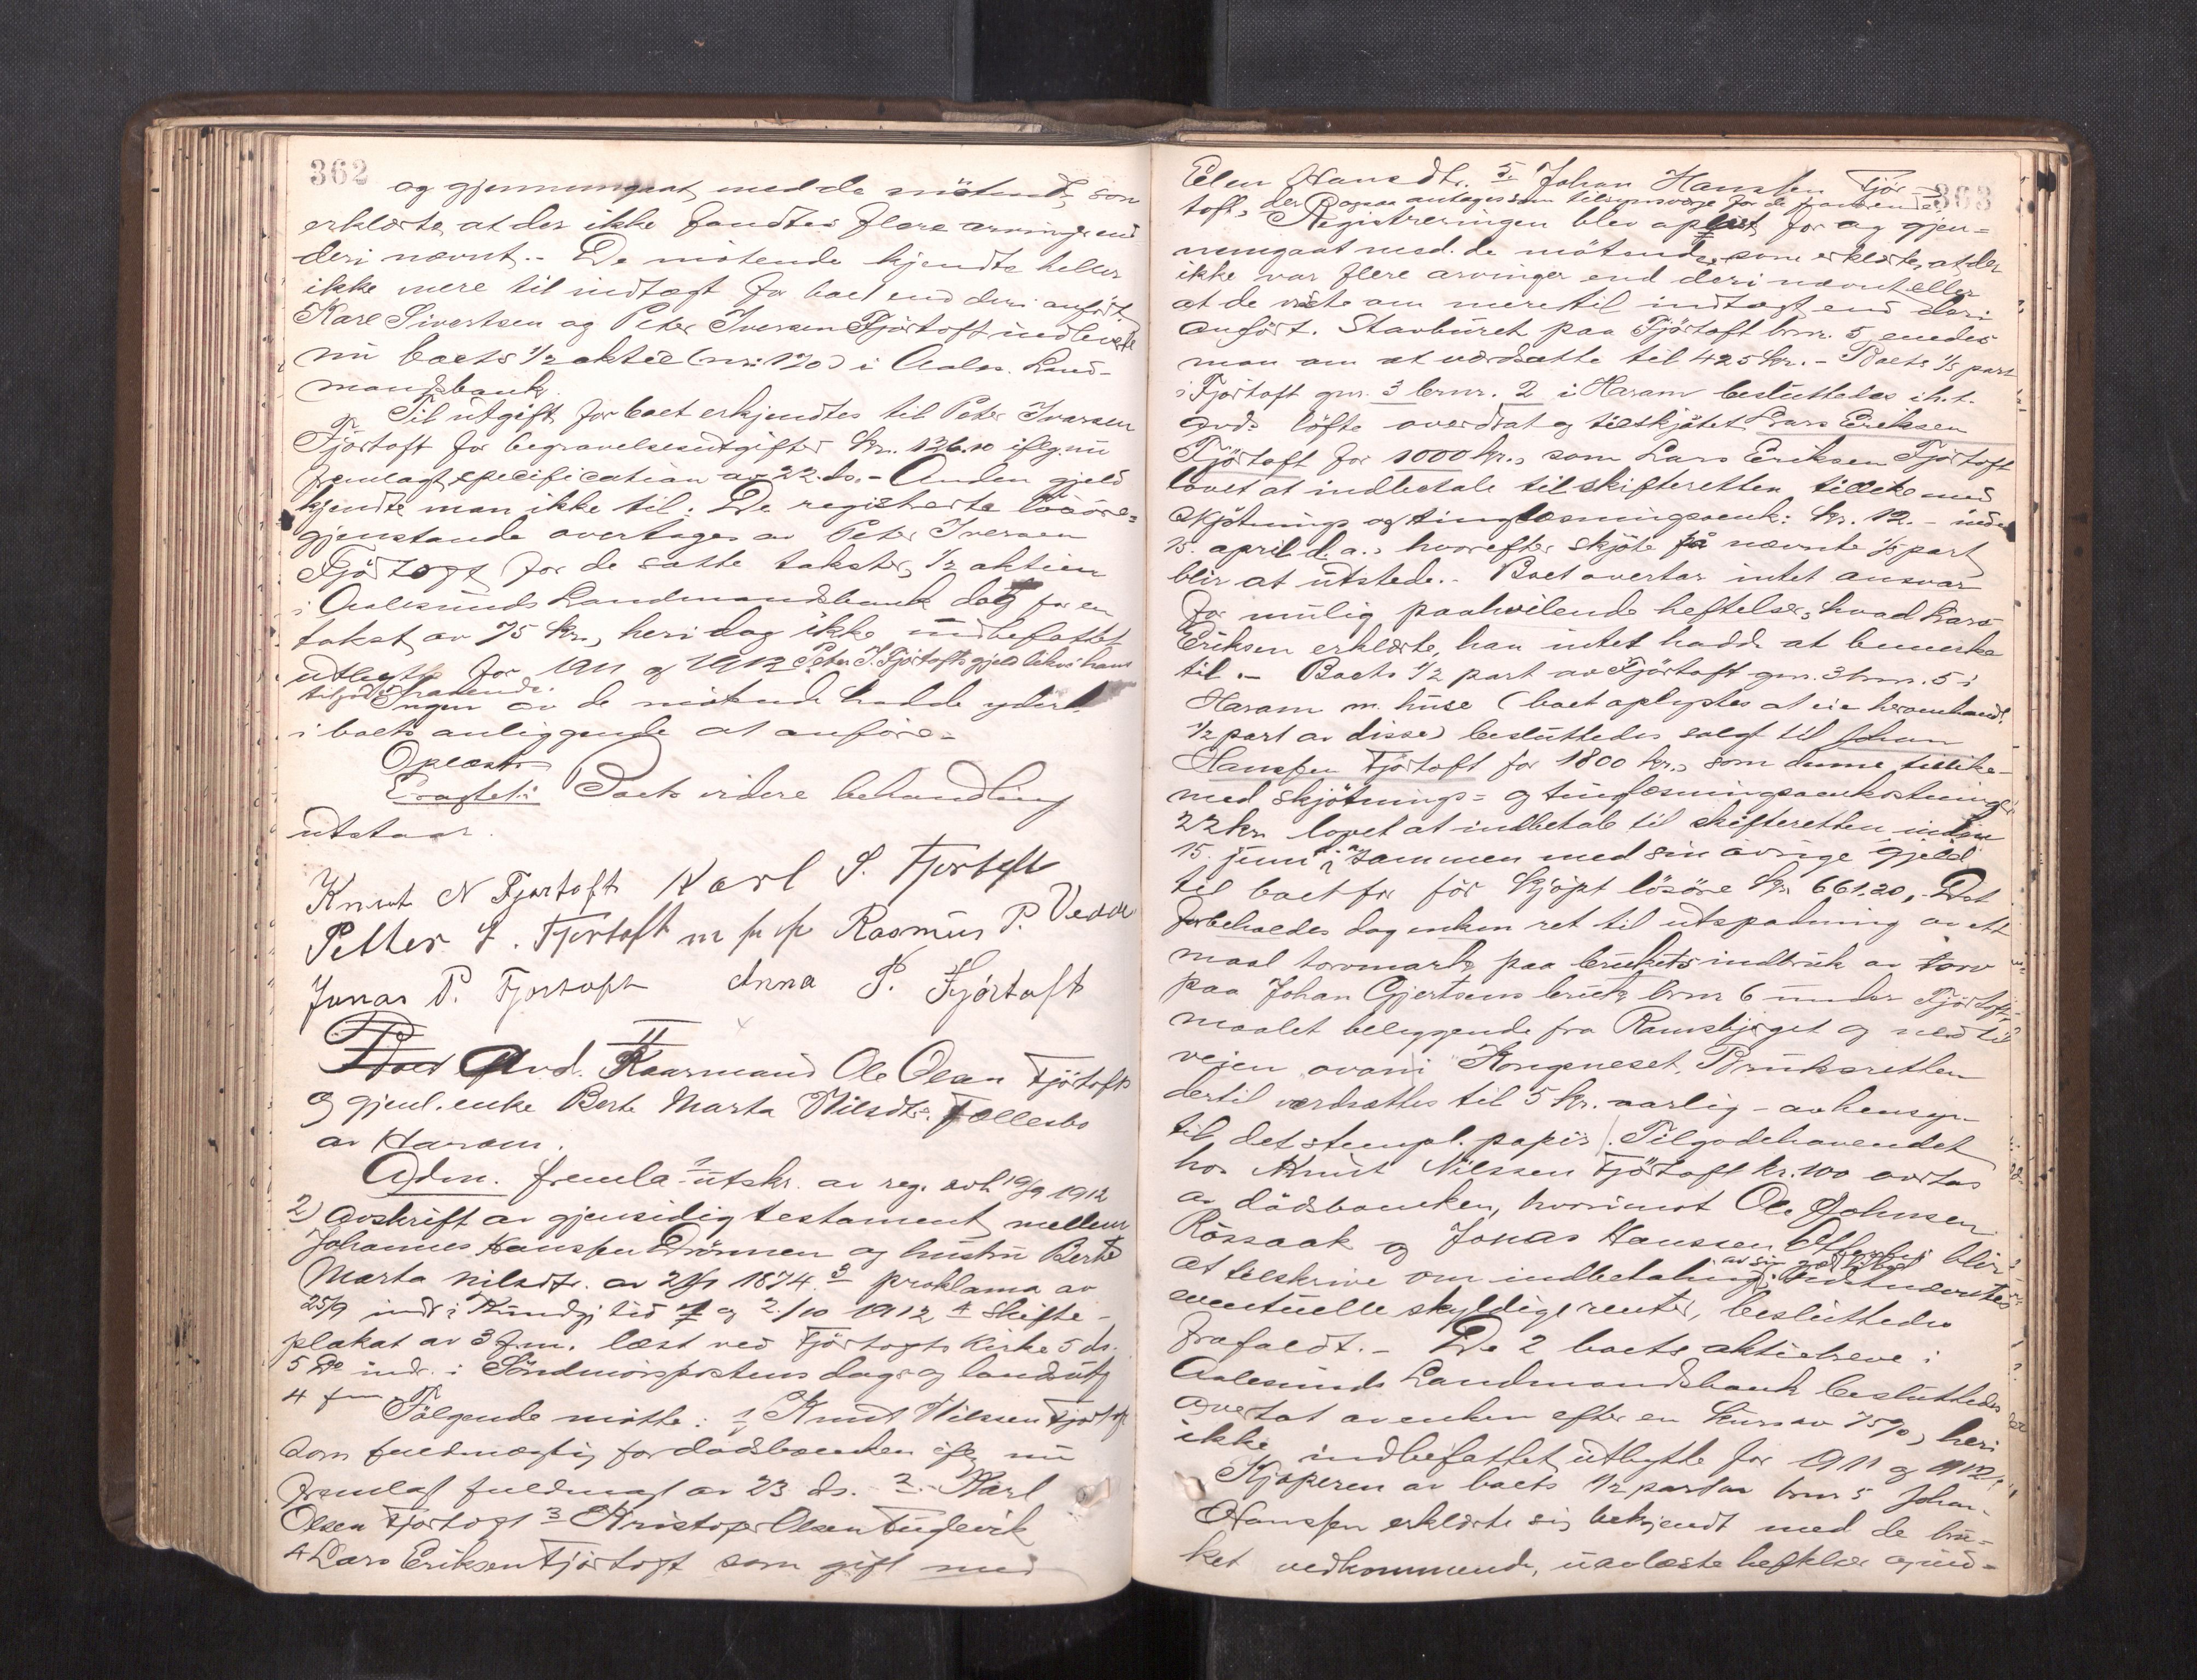 362
og gjennemgaat med de mötende, som
erklærte at der ikke fandtes flere arvinger end
deri nævnt. - De mötende kjendte heller
ikke mere til indtægt for boet end deri anfört
Karl Sivertsen og Peter Iversen Fjörtoft indleverte
nu boets 1/2 aktie (nr. 170) i Aales. Land-
mandsbank.
Til utgift for boet erkjendtes til Peter Ivarsen
Fjörtoft for begravelsesutgifter kr. 136.10 ifølg. nu
fremlagt specification av 22. ds. - Anden gjeld
kjendte man ikke til. De registrerte lösöre-
gjenstande overtages av Peter Iversen
Fjörtoft for de satte takster, 1/2 aktien
i Aalesunds Landmandsbank dog for en
takst av 75 kr., heri dog ikke indbefattet
utbytte for 1911 og 1912. Peter I. Fjörtofts gjeld likesom hans
tilgodehavende.
Ingen av de mötende hadde ydert
i boets anliggende at anföre. -
Oplæst
Eragtet: Boets videre behandling
utstaar.
Knut N Fjørtoft Karl S. Fjørtoft
Petter I. Fjørtoft m p p Rasmus P.
Jonas P. Fjørtoft Anna P. Fjörtoft
II
Avd. Kaarmand Ole Olsen Fjörtoft
og gjenl. enke Berte Marta Nilsdtr. Fællesbo
av Haram.
Adm. fremla 1 utskr. av reg. avh 19/9 1912
2) Avskrift av gjensidig testament mellem
Johannes Hanssen Drönnen og hustru Berte
Marta Nilsdtr. av 1874. 3 proklama av
25/9 indr. i Kundgj.tid og 2/10 1912 4 Skifte-
plakat av 3 f.m. læst ved Fjörtofts kirke 5 ds.
5 Do indr. i Söndmörspostens dags og landsutg
4 fm
Følgende mötte: 1 Knut Nilssen Fjørtoft
som fuldmægtig for dødsboenken ifölg nu
fremlagt fuldmagt av 23 ds. 2. Karl
Olsen Fjørtoft 3 Kristofer Olsen Fuglevik
4 Lars Eriksen Fjørtoft som gift med
363
Elen Hansdtr. 5. Johan Hanssen Fjör-
toft, der ogsaa antages som tilsynsværge for de fraværende.
Registreringen blev oplæst for og gjen-
nemgaat med de mötende, som erklærte, at der
ikke var flere arvinger end deri nævnt eller
at de viste om mere til indtægt end deri
anført. Stavburet paa Fjörtoft bnr. 5 enedes
man om at værdsætte til 425 kr. - Boets 1/3 part
i Fjörtoft gnr. 3 brnr. 2 i Haram besluttedes i h. t.
avd. löfte overdrat og tilskjötet Lars Eriksen
Fjörtoft for 1000 kr., som Lars Eriksen Fjörtoft
lovet at indbetale til skifteretten tillike med
skjötnings og tinglæsningsomk: kr. 12. - inden
15. april d. a., hvorefter skjöte på nævnte 1/3 part
blir at utstede. - Boet overtar intet ansvar
for mulig paahvilende heftelser, hvad Lars
Eriksen erklærte, han intet hadde at bemerke
til. - Boets 1/2 part av Fjörtoft gnr. 3 brnr. 5 i
Haram m. huse (boet oplystes at eie heromhandl.
1/2 part av disse) besluttedes solgt til Johan
Hanssen Fjörtoft for 1800 kr., som denne tillike-
med skjötnings- og tinglæsningsomkostninger
22 kr. lovet at indbetale til skifteretten inden
15. juni sammen med sin övrige gjeld
til boet for för kjöpt lösöre kr. 661.20. Det
forbeholdes dog enken ret til utspadning av ett
maal torvmark paa brukets indbruk av torv
paa Johan Gjertsens bruk brnr 6 under Fjørtoft,
maalet beliggende fra Ramsbjerget og ned til
veien ovani Kongeneset. Bruksretten
dertil værdsættes til 5 kr. aarlig - av hensyn
til det stempl. papir. Tilgodehavendet
hos Knut Nilssen Fjörtoft kr. 100 overtas
av dödsboenken, hvorimot Ole Johnsen
Rössaak og Jonas Hanssen blir
at tilskrive om indbetaling av sin gjeld.
eventuelle skyldige renter, besluttedes
frafaldt. - De 2 boets aktiebreve i
Aalesunds Landmandsbank besluttedes
overtat av enken efter en kurs av 75%, heri
ikke indbefattet utbytte for 1911 og 1912.
Kjöperen av boets 1/2 part av brnr 5 Johan
Hanssen erklærte sig bekjendt med de bru-
ket vedkommende, uavlæste heftelser og ind-